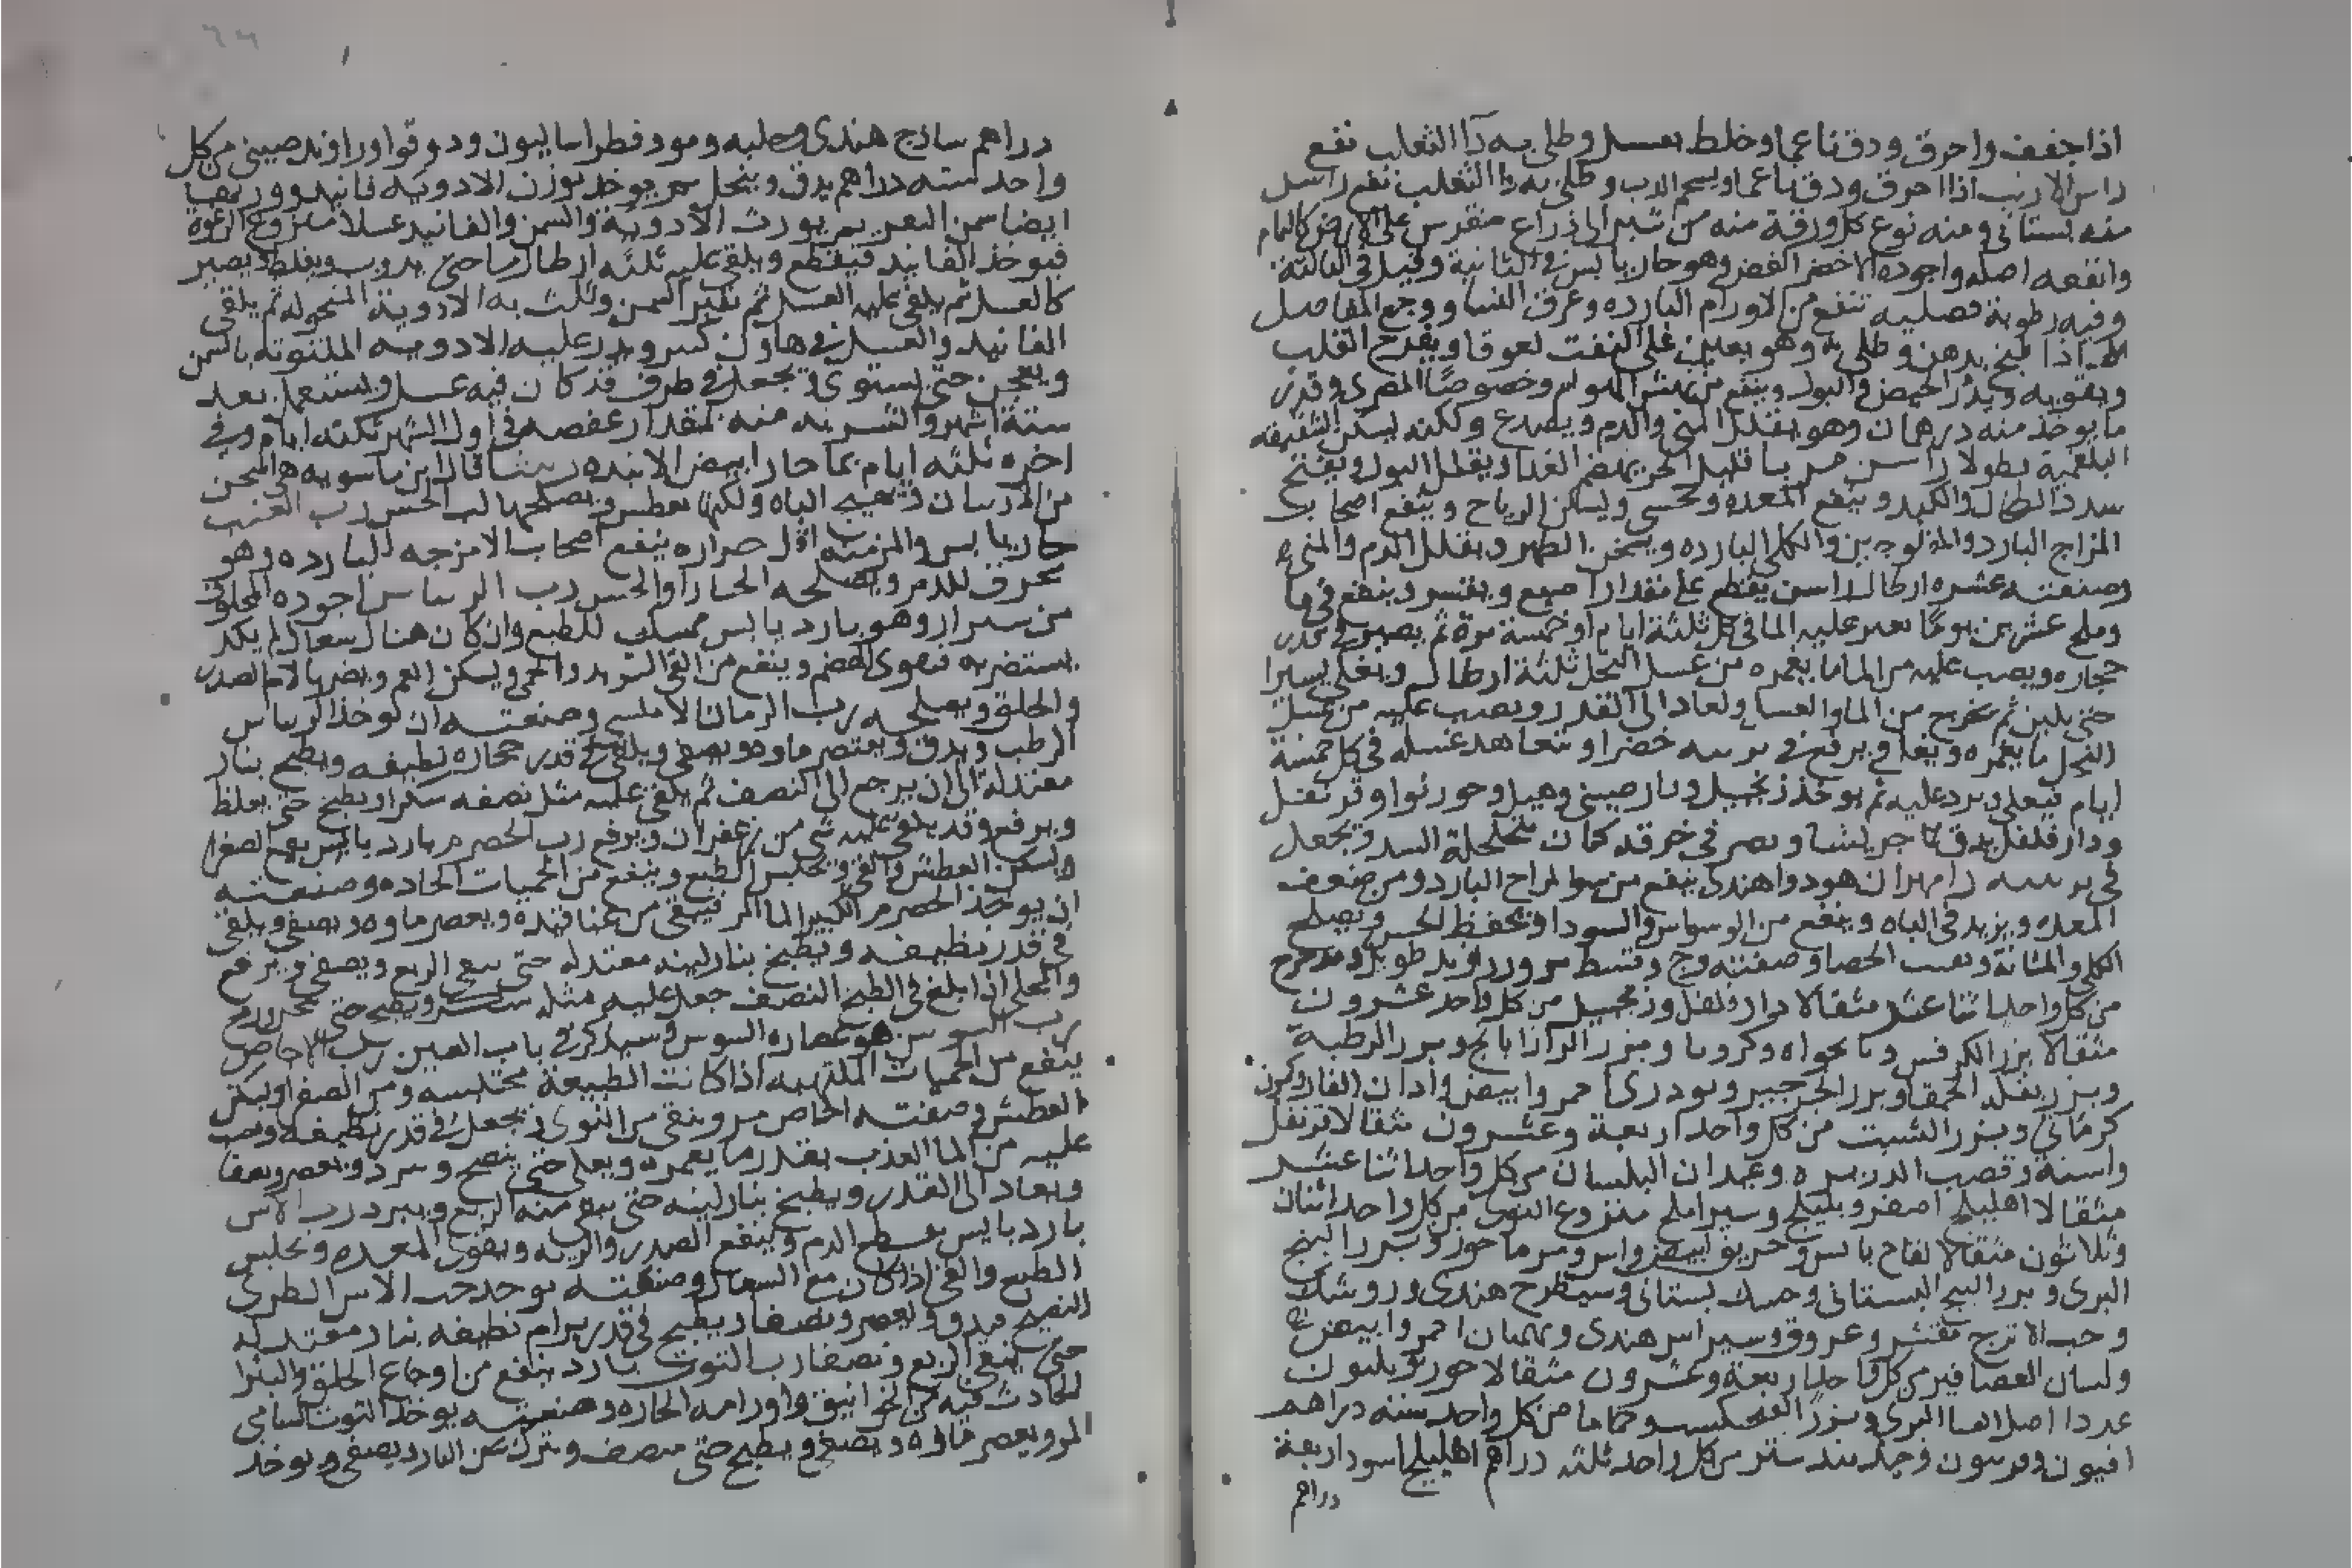 اذا جفف واحرق ودق ناعما وخلط بعسل وطلي به داالثعلب نفع
راس الارنب اذا احرق ودق ناعما وبشحم الدب وطلى به داالثعلب نفع راسن
منه بستانى ومنه نوع كل ورقة منه من شبر الى ذراع منفرس على الارض كالنمام
وانفعه اصله واجوده الاخضر الغض وهو حار يابس فى الثانية وقيل فى الثالثة
وفيه رطوبة فصليه تنفع من الاورام البارده وعرق النسا ووجع المفاصل
اذا طبخ بدهن وطلى به وهو يعين على النفث لعوقا ويفرح القلب
ويقويه ويدر الحيض والبول وينفع من نهش الهوام وخصوصا المصرى وقدر
ما يوخذ منه درهمان وهو يقلل المنى والدم ويصدع ولكنه يسكن الشقيقه
البلغمية نطولا راسن مربا قليل الحر يهضم الغدا ويقلل البول ويفتح
سدد الطحال والكبد وينفع المعده ويحشى ويسكن الرياح وينفع اصحاب
المزاج البارد والمثلوجين والكلى البارده ويسخن الظهر ويقلل الدم والمنى
وصنعته عشره ارطال راسن يقطع على مقدار اصبع ويقشر وينقع فى ما
وملح عشرين يوما يغير عليه الما فى كل ثلثة ايام او خمسة مرة ثم يصير فى قدر
حجاره ويصب عليه من الما ما يغمره من عسل النحل ثلثة ارطال ويغلى يسيرا
حتى يلين ثم يخرج من الما والعسل ويعاد الى القدر ويصب عليه من عسل
النحل ما يغمره ويغلى ويرفع فى برنيه خضرا وتتعاهد غسله فى كل خمسة
ايام فيغلى ويرد عليه ثم يوخذ زنجبيل ودارصينى وهيل وجوزبوا وقرنفل
ودارفلفل يدق جريشا ويصر فى خرقة كتان متخلخلة السد ويجعل
فى برنيه راسهران هو دوا هندى ينفع من سوالمزاج البارد ومن ضعف
المعده ويزيد فى الباه وينفع من الوسواس والسودا ويحفظ الحس ويصلح
الكلى والمثانة ويفتت الحصا وصفته وج وقسط مر وزراوند طويل ومدحرج
من كل واحد اثنا عشر مثقالا دارفلفل وزنجبيل من كل واحد عشرون
مثقالا بزر الكرفس ونانخواه وكرويا وبزر الرازيانج وبزر الرطبة
وبزر بقلة الحمقا وبزر الجرجير وتودرى احمر وابيض واذان الفار وكمون
كرمانى وبزر الشبت من كل واحد اربعة وعشرون مثقالا قرنفل
واشنة وقصب الذريره وعيدان البلسان من كل واحد اثنا عشر
مثقالا اهليلج اصفر وبليلج وسيراملج منزوع النوى من كل واحد اثنان
وثلاثون مثقالا لفاح يابس وخربق ابيض واس وسرماخوز وبزر البنج
البرى وبزر البنج البستانى وحسك بستانى وسيطرج هندى وروشنك
وحب الاترج مقشر وعروق وسيراس هندى وبهمان احمر وابيض
ولسان العصافير من كل واحد اربعة وعشرون مثقالا
اصل السا البرى وبزر الفنجنكشت وحماما من كل واحد سته دراهم
افيون وفربيون وجندبيدستر من كل واحد ثلثه دراهم اهليلج اسود اربعة
دراهم
دراهم ساذج هندى وحلبه وفطراساليون ودوقوا وراوند صينى من كل
واحد سته دراهم يدق وينخل ثم يوخذ بوزن الادوية فانيد ووزنها
ايضا سمن البقر ثم يوزن الادوية والسمن والفانيد عسلا منزوع الرغوة
فيوخذ الفانيد فيقطع ويلقى عليه ثلثه ارطال ما حتى يذوب ويغلظ ويصير
كالعسل ثم يلقى عليه العسل ثم يفتر السمن وتلت به الادوية المنخوله ثم يلقى
الفانيد والعسل فى هاون كبير ويذر عليه الادويه الملتوته بالسمن
ويعجن حتى يستوى ويجعل فى ظرف قد كان فيه عسل ويستعمل بعد
ستة اشهر والشربه منه بمقدار عفصه فى اول الشهر ثلثه ايام وفى
اخره ثلثه ايام بما حار قال ابن ماسويه هى
الباه ولكنها تعطش ويصلحها لب الخس رب العنب
حار يابس والمزمنه اقل حراره ينفع اصحاب الامزجه البارده وهو
محرق للدم ويصلحه الخيار او الخس رب الريباس اجوده المجلوب
من وهو بارد يابس ممسك للطبع وان كان هناك سعال لم يكد
يستضر به فيقوى الهضم وينفع من القى الشديد والحمى ويسكن الغم ويضر بالام الصدر
والحلق ويصلحه رب الرمان الاملسى وصنعته ان يوخذ الريباس
الرطب ويدق ويعتصر ماوه ويصفى ويلقى فى قدر حجاره نظيفه ويطبخ بنار
معتدلة الى ان يرجع الى النصف ثم يلقى عليه مثل نصفه سكرا ويطبخ حتى يغلظ
ويرفع وقد يلقى عليه شى من زعفران ويرفع رب الحصرم بارد يابس يقمع الصفرا
ويسكن العطش والقى ويحلبس الطبع وينفع من الحميات الحاده وصنعته
ان يوخذ الحصرم الكبير الما المر فينقى من عناقيده ويعصر ماوه ويصفى ويلقى
فى قدر نظيفه ويطبخ بنار لينه معتدله حتى يبقى الربع ويصفى ويرفع
والمحلى اذا بلغ فى الطبخ النصف جعل عليه مثله سكر ويطبخ حتى
رب السوس هو عصاره السوس وسيذكر فى باب العين رب الاجاص
ينفع من الحميات الملتهبه اذا كانت الطبيعة محتبسه ومن الصفرا ويسكن
العطش وصنعته اجاص وينقى من النوى ويجعل فى قدر نظيفه ويصب
عليه من الما العذب بقدر ما يغمره ويغلى حتى ينضج ويبرد ويعصر ويصفا
ويعاد الى القدر ويطبخ بنار لينه حتى يبقى منه الربع ويبرد رب الاس
بارد يابس يقطع الدم وينفع الصدر والريه ويقوى المعده ويحبس
الطبع والقى اذا كان مع السعال وصنعته يوخذ حب الاس الطرى
النضيج فيدق ويعصر ويصفا ويطبخ فى قدر برام نظيفه بنار معتدله
حتى يبقى الربع ويصفا رب التوت بارد ينفع من اوجاع الحلق والبثرا
الحادث فيه من الخوانيق واورامه الحاره وصنعته يوخذ التوت الشامى
المر ويعصر ماوه ويصفى ويطبخ حتى ينصف ويترك عن النار ويصفى ويوخذ